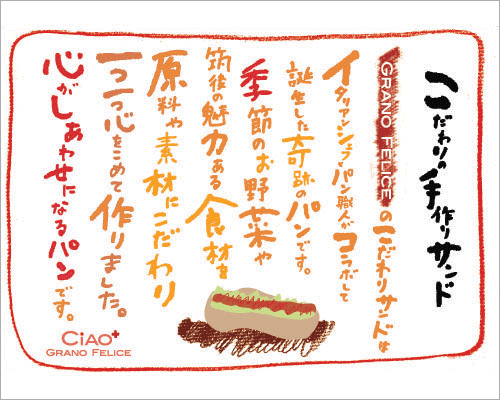 こだわりの手作りサンド
GRANO FELICEのこだわりサンドは
イタリアンシェフとパン職人がコラボして
誕生した奇跡のパンです。
季節のお野菜や
筑後の魅力ある食材を
原料や素材にこだわり
一つ一つ心をこめて作りました。
心がしあわせになるパンです。
CIAO+
GRANO FELICE